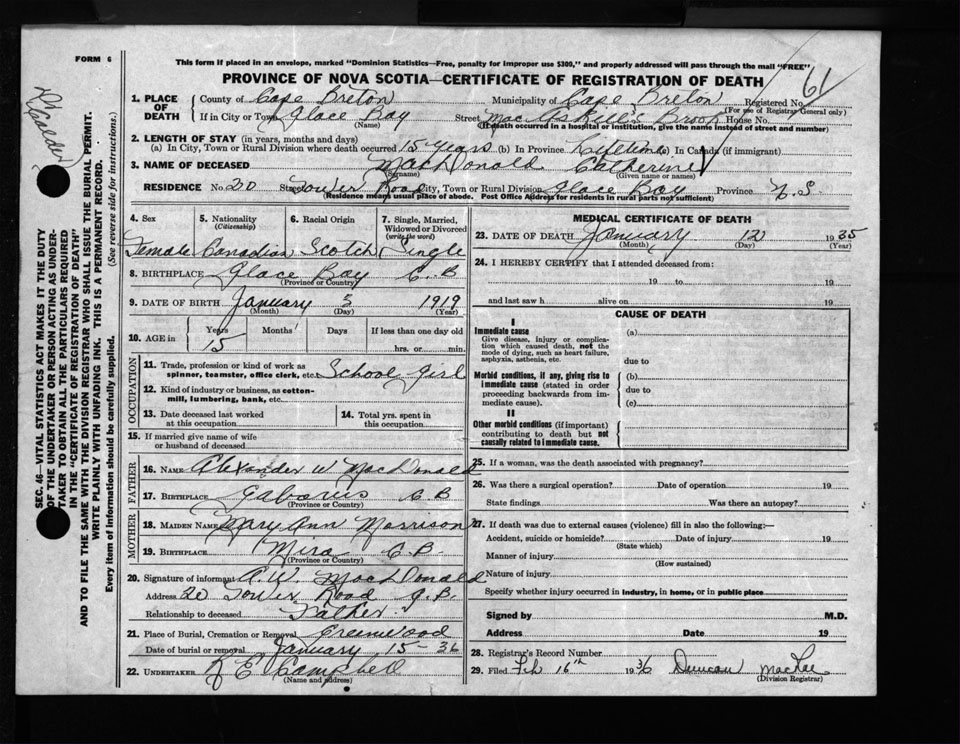 FORM 6
This form if placed in an envelope, marked "Dominion Statistics—Free, penalty for improper use $300," and properly addressed will pass through the mail "FREE"
PROVINCE OF NOVA SCOTIA—CERTIFICATE OF REGISTRATION OF DEATH
61
1. PLACE OF DEATH County of Cape Breton Municipality of Cape Breton Registered No.
(For use of Registrar General only)
If in City or Town Glace Bay Street Brook House No.
(Name) (If death occurred in a hospital or institution, give the name instead of street and number)
2. LENGTH OF STAY (in years, months and days)
(a) In City, Town or Rural Division where death occurred 15 years (b) In Province Lifetime (c) In Canada (if immigrant)
3. NAME OF DECEASED MacDonald Catherine
(Surname) (Given name or names)
RESIDENCE No. 20 Street Tower Road City, Town or Rural Division Glace Bay Province N.S
(Residence means usual place of abode. Post Office Address for residents in rural parts not sufficient)
4. Sex 5. Nationality (Citizenship) 6. Racial Origin 7. Single, Married, Widowed or Divorced (write the word)
Female Canadian Scotch Single
8. BIRTHPLACE Glace Bay C.B
(Province or Country)
9. DATE OF BIRTH January 3 1919
(Month) (Day) (Year)
10. AGE in Years Months Days If less than one day old
15 hrs. or min.
OCCUPATION
11. Trade, profession or kind of work as spinner, teamster, office clerk, etc. School Girl
12. Kind of industry or business, as cotton-mill, lumbering, bank, etc.
13. Date deceased last worked at this occupation
14. Total yrs. spent in this occupation
15. If married give name of wife or husband of deceased
FATHER
16. NAME Alexander W MacDonald
17. BIRTHPLACE Gabarus C B
(Province or Country)
MOTHER
18. MAIDEN NAME Mary Ann Morrison
19. BIRTHPLACE Mira C.B
(Province or Country)
20. Signature of informant A.W. MacDonald
Address 20 Tower Road G.B.
Relationship to deceased Father
21. Place of Burial, Cremation or Removal Greenwood
Date of burial or removal January 15-36
22. UNDERTAKER R E Campbell
(Name and address)
MEDICAL CERTIFICATE OF DEATH
23. DATE OF DEATH January 12 1935
(Month) (Day) (Year)
24. I HEREBY CERTIFY that I attended deceased from:
19 to 19
and last saw h alive on 19
CAUSE OF DEATH
I
Immediate cause (a)
Give disease, injury or complication which caused death, not the mode of dying, such as heart failure, asphyxia, asthenia, etc.
due to
Morbid conditions, if any, giving rise to immediate cause (stated in order proceeding backwards from immediate cause).
(b)
due to
(c)
II
Other morbid conditions (if important) contributing to death but not causally related to immediate cause.
25. If a woman, was the death associated with pregnancy?
26. Was there a surgical operation? Date of operation 19
State findings Was there an autopsy?
27. If death was due to external causes (violence) fill in also the following:—
Accident, suicide or homicide? Date of injury 19
(State which)
Manner of injury
(How sustained)
Nature of injury
Specify whether injury occurred in industry, in home, or in public place
Signed by M.D.
Address Date 19
28. Registrar's Record Number
29. Filed Feb 16th 1936 Duncan MacRae
(Division Registrar)
SEC. 46—VITAL STATISTICS ACT MAKES IT THE DUTY
OF THE UNDERTAKER OR PERSON ACTING AS UNDER-
TAKER TO OBTAIN ALL THE PARTICULARS REQUIRED
IN THE "CERTIFICATE OF REGISTRATION OF DEATH"
AND TO FILE THE SAME WITH THE DIVISION REGISTRAR WHO SHALL ISSUE THE BURIAL PERMIT.
WRITE PLAINLY WITH UNFADING INK. THIS IS A PERMANENT RECORD.
Every item of Information should be carefully supplied. (See reverse side for instructions.)